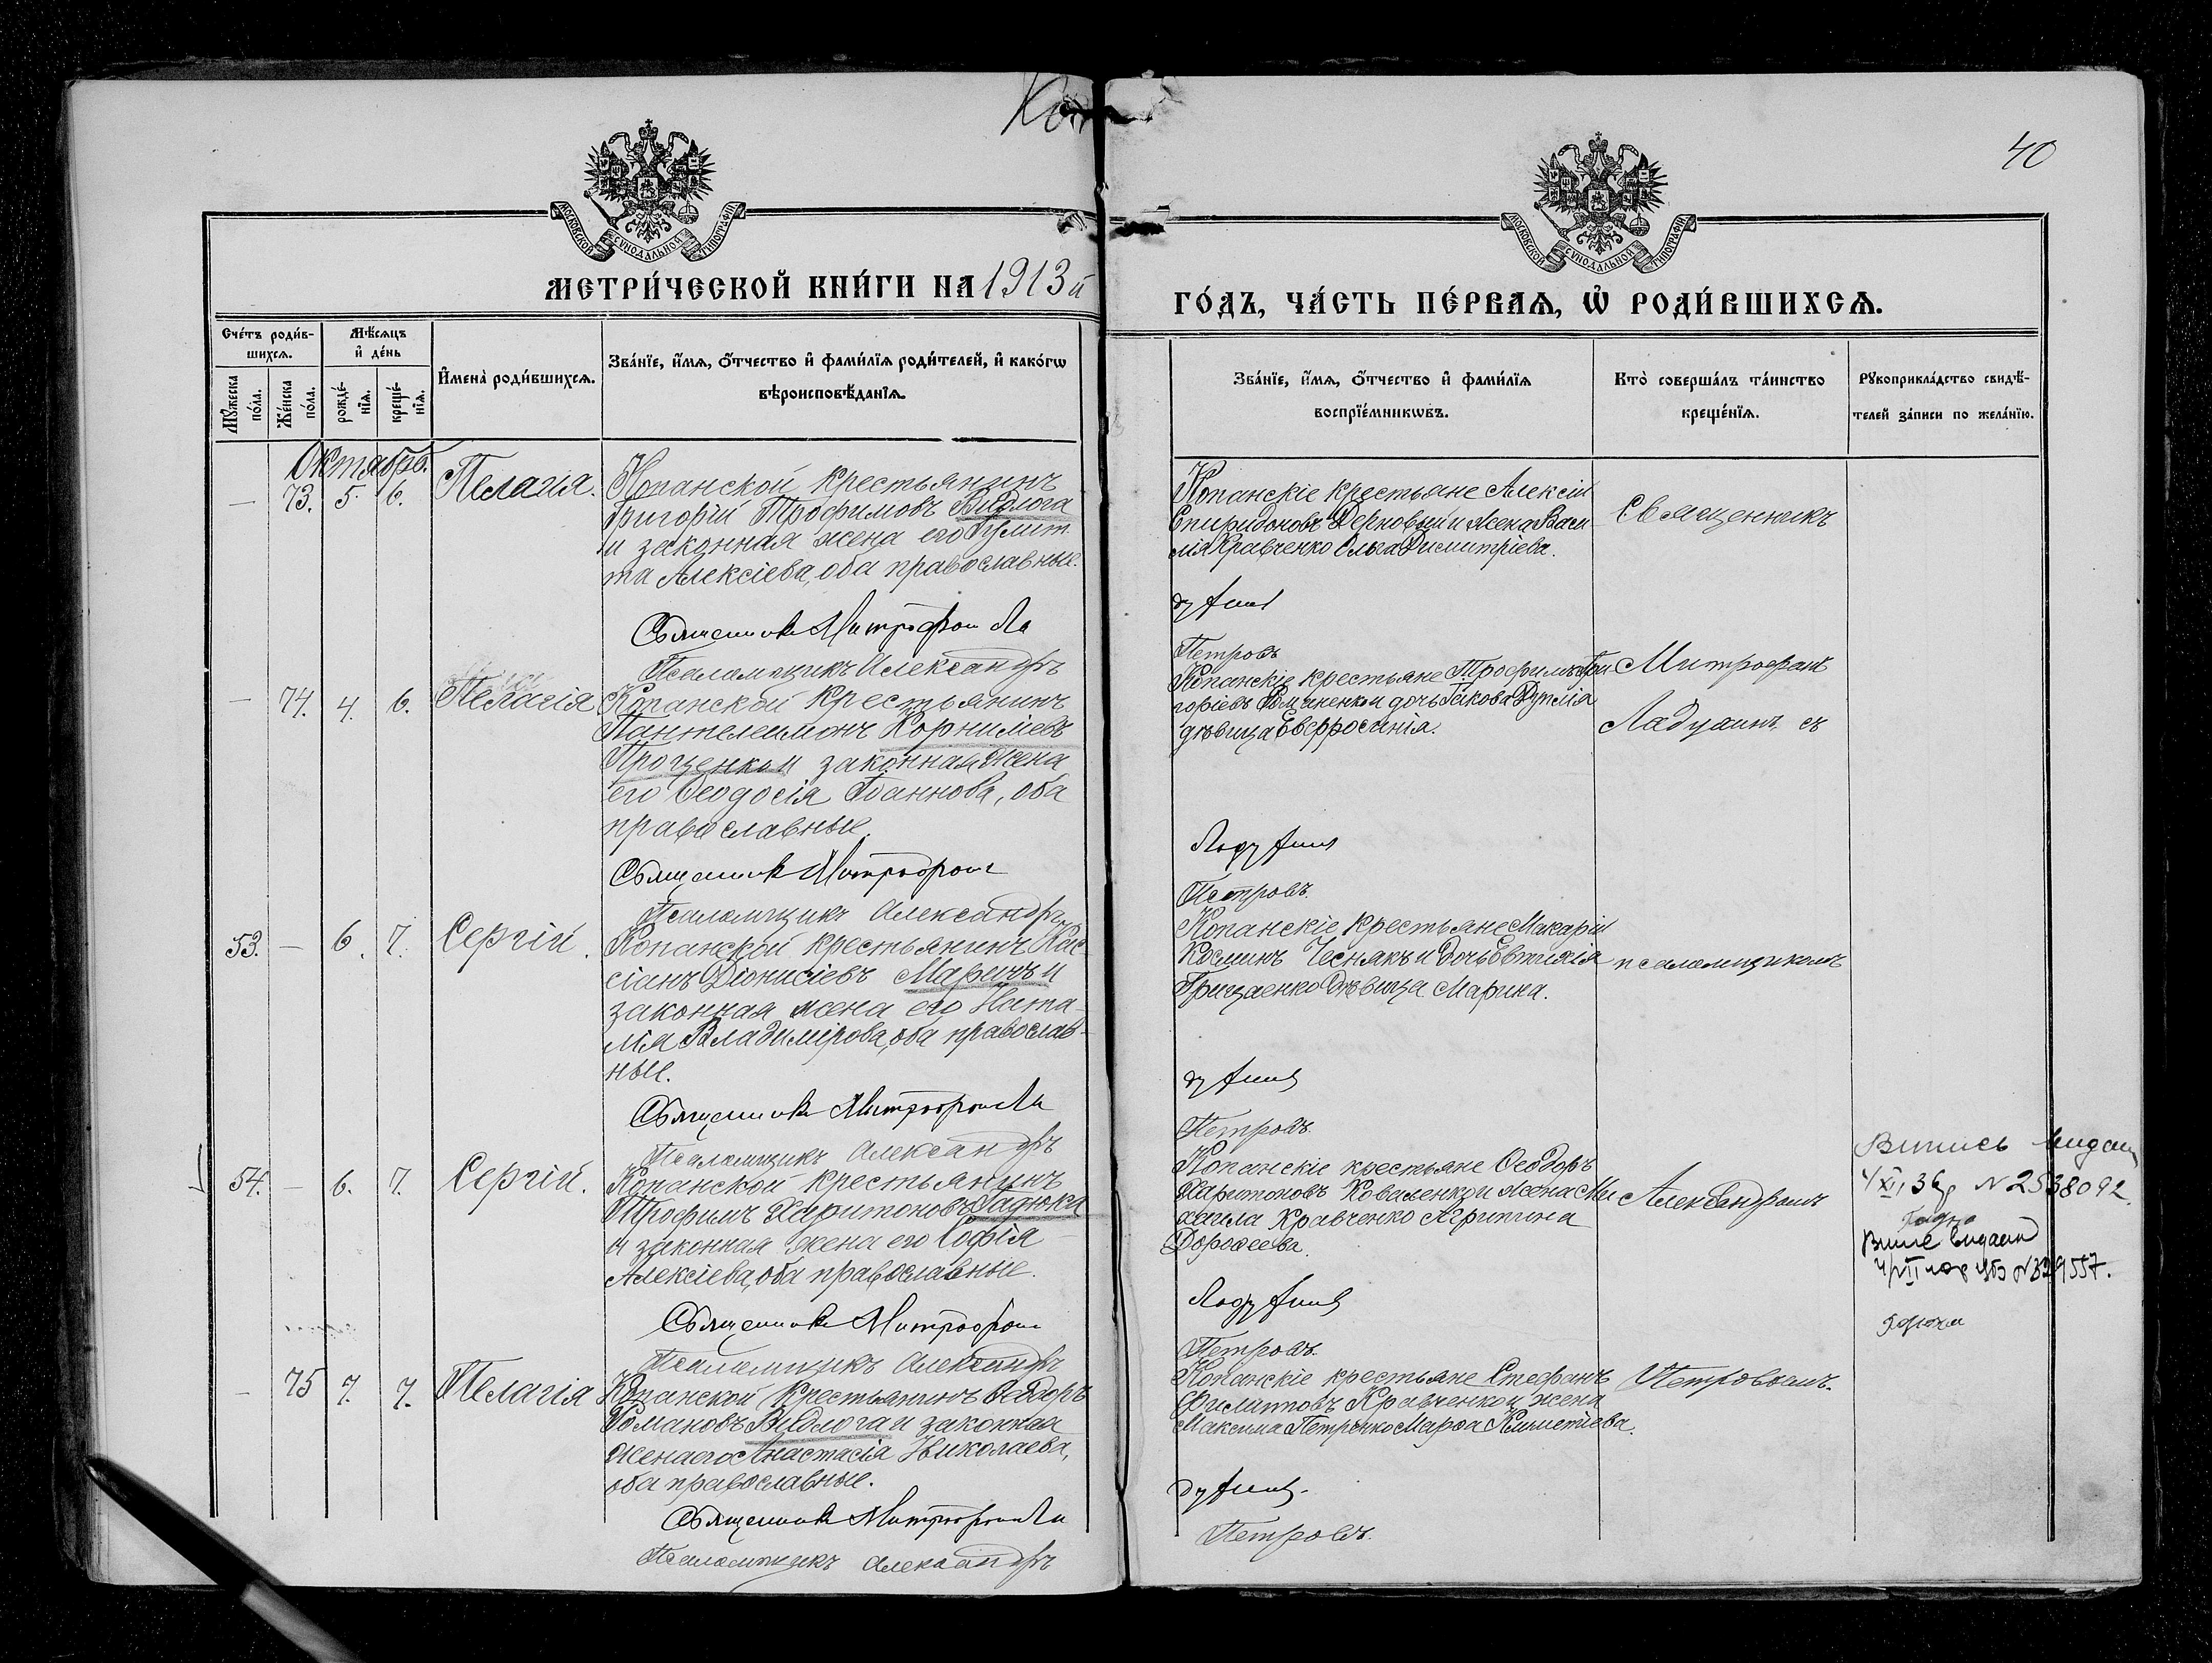 40
МОСКОВСКОЙ СѴНОДАЛЬНОЙ ТИПОГРАФІИ
МОСКОВСКОЙ СѴНОДАЛЬНОЙ ТИПОГРАФІИ
МЕТРИ́ЧЕСКОЙ КНИ́ГИ НА 1913й
ГО́ДЪ, ЧА́СТЬ ПЕ́РВАѦ, Ѡ҆ РОДИ́ВШИХСѦ.
Сче́тъ роди́в-
шихсѧ.
Мꙋ́жеска
по́ла.
Же́нска
по́ла.
Мѣ́сѧцъ
и҆ де́нь
рожде́-
нїѧ.
креще́-
нїѧ.
И҆мена̀ роди́вшихсѧ.
Зва́нїе, и҆́мѧ, ѻ҆́тчество и҆ фами́лїѧ роди́телей, и҆ како́гѡ
вѣроисповѣ́данїѧ.
Зва́нїе, и҆́мѧ, ѻ҆́тчество и҆ фами́лїѧ
воспрїе́мникѡвъ.
Кто̀ соверша́лъ та́инство
креще́нїѧ.
Рꙋкоприкла́дство свидѣ́-
телей за́писи по жела́нїю.
Октябрь.
— 73. 5. 6. Пелагія.
Копанской крестьянинъ
Григорій Трофимовъ Видлога
и законная жена его Іулит-
та Алексіева, оба православные.
Священникъ Митрофанъ Ла
Псаломщикъ Александръ
Копанскіе крестьяне Алексій
Спиридоновъ Дерновый и жена Васи
лія Кравченко Ольга Димитріева.
духинъ
Петровъ
Священникъ
— 74. 4. 6. Пелагія
Копанской крестьянинъ
Пантелеимонъ Корниліевъ
Проценко и законная жена
его Ѳеодосія Іоаннова, оба
православные.
Священникъ Митрофанъ
Псаломщикъ Александръ
Копанскіе крестьяне Трофимъ Гри
горіевъ Фоминенко и дочь Іакова
дѣвица Евфросинія.
Ладухинъ
Петровъ.
Митрофанъ
Ладухинъ съ
53. — 6. 7. Сергій.
Копанской крестьянинъ Кас-
сіанъ Діонисіевъ Маричъ и
законная жена его Ната-
лія Владимірова, оба православ-
ные.
Священникъ Митрофанъ Ла
Псаломщикъ Александръ
Копанскіе крестьяне Макарій
Косминъ Чеснякъ и дочь Евтихія
Грицаенко дѣвица Марина.
духинъ
Петровъ.
псаломщикомъ
54. — 6. 7. Сергій.
Копанской крестьянинъ
Трофимъ Харитоновъ Гадюка
и законная жена его Софія
Алексіева, оба православные.
Священникъ Митрофанъ
Псаломщикъ Александръ
Копанскіе крестьяне Ѳеодоръ
Харитоновъ Коваленко и жена Ми
хаила Кравченко Агрипина
Дороѳеева.
Ладухинъ
Петровъ.
Александромъ
Випись видан
4 XII 36 р N 2538092.
N 329557.
— 75 7. 7. Пелагія
Копанской крестьянинъ Ѳеодоръ
Романовъ Видлога и законная
жена его Анастасія Николаева,
оба православные.
Священникъ Митрофанъ Ла
Псаломщикъ Александръ
Копанскіе крестьяне Стефанъ
Филипповъ Кравченко и жена
Максима Петренко Марѳа Климетіева.
духинъ.
Петровъ.
Петровымъ.